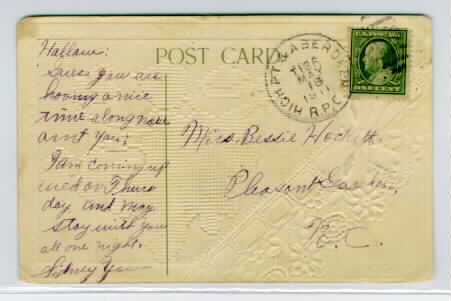 POST CARD
HIGH PT. & ABERDEEN
MAY
18
1911
R.P.O.
ONE CENT
Hallow:
Guess you are
having a nice
time along now
aint you;
I am coming up
wed or Thurs
day and may
stay with you
all one night.
Miss. Bessie
Pleasant Garden,
N.C.